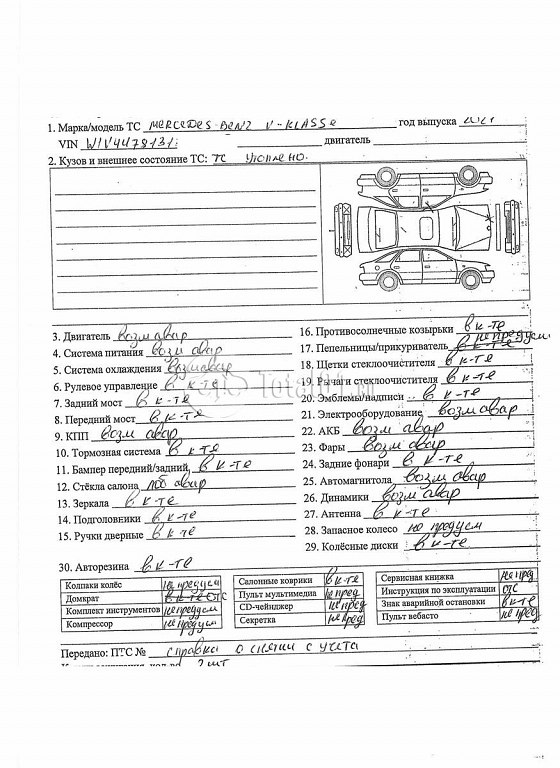 1. Марка/модель ТС MERCEDES-BENZ V-KLASSE год выпуска
VIN W1V4478131 двигатель
2. Кузов и внешнее состояние ТС: ТС утоплено.
3. Двигатель возм авар
4. Система питания возм авар
5. Система охлаждения возм авар
6. Рулевое управление в к-те
7. Задний мост в к-те
8. Передний мост в к-те
9. КПП возм авар
10. Тормозная система в к-те
11. Бампер передний/задний в к-те
12. Стёкла салона лоб авар
13. Зеркала в к-те
14. Подголовники в к-те
15. Ручки дверные в к-те
16. Противосолнечные козырьки в к-те
17. Пепельницы/прикуриватель не предусм
18. Щетки стеклоочистителя в к-те
19. Рычаги стеклоочистителя в к-те
20. Эмблемы/надписи в к-те
21. Электрооборудование возм авар
22. АКБ возм авар
23. Фары возм авар
24. Задние фонари в к-те
25. Автомагнитола возм авар
26. Динамики возм авар
27. Антенна в к-те
28. Запасное колесо не предусм
29. Колёсные диски в к-те
30. Авторезина в к-те
Колпаки колёс не предусм
Домкрат отс
Комплект инструментов не предусм
Компрессор не предусм
Салонные коврики в к-те
Пульт мультимедиа не пред
CD-чейнджер не пред
Секретка не пред
Сервисная книжка не пред
Инструкция по эксплуатации отс
Знак аварийной остановки в к-те
Пульт вебасто не пред
Передано: ПТС № справка о снятии с учета
2 шт
Total01.ru